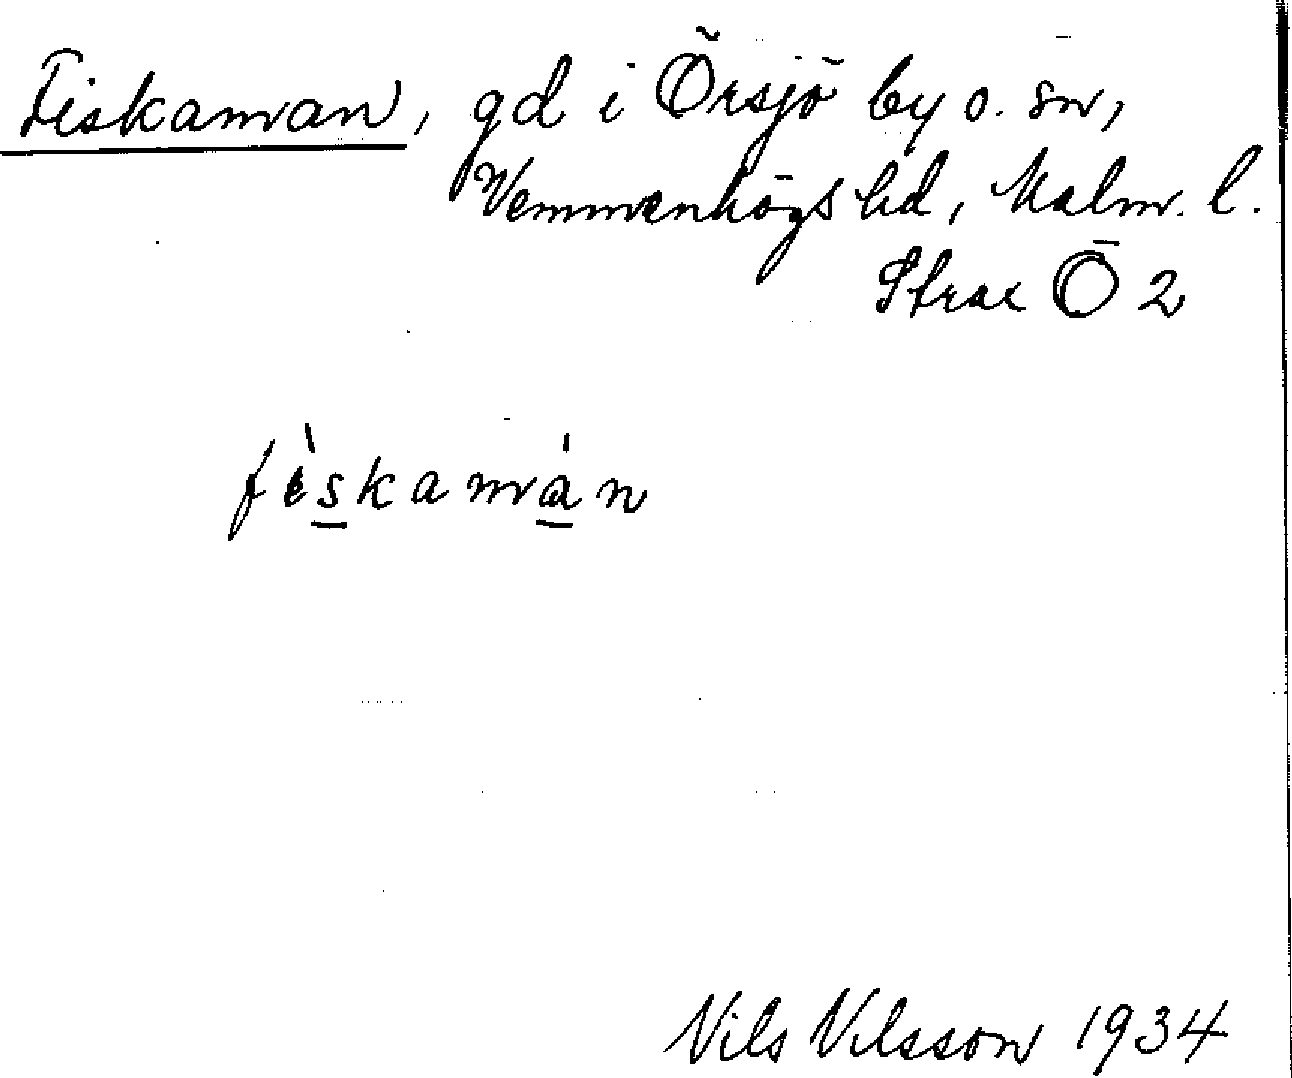 Fiskaman, gd i Örsjö by o. sn,
Vemmenhögs hd, Malm. l.
Strax Ö 2
fìskamán
Nils Nilsson 1934